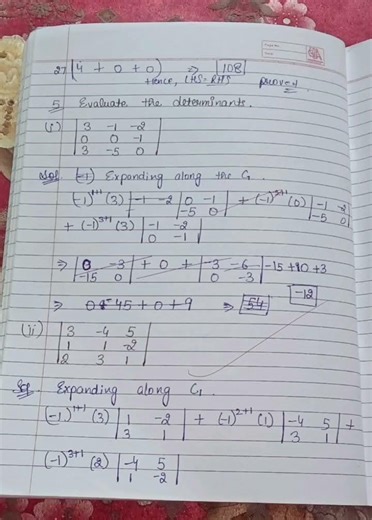 27 (4 + 0 + 0) ⇒ |108|
Hence, LHS = RHS proved
5 Evaluate the determinants.
(i) | 3 -1 -2 |
| 0 0 -1 |
| 3 -5 0 |
Sol Expanding along the C1.
(-1)^1+1 (3) | 0 -1 | + (-1)^2+1 (0) | -1 -2 |
| -5 0 | | -5 0 |
+ (-1)^3+1 (3) | -1 -2 |
| 0 -1 |
⇒ | 0 -3 | + 0 + | -3 -6 | -15 +10 +3
| -15 0 | | 0 -3 |
⇒ 0 - 45 + 0 + 9 ⇒ 54 -12
(ii) | 3 -4 5 |
| 1 1 -2 |
| 2 3 1 |
Sol Expanding along C1.
(-1)^1+1 (3) | 1 -2 | + (-1)^2+1 (1) | -4 5 | +
| 3 1 | | 3 1 |
(-1)^3+1 (2) | -4 5 |
| 1 -2 |